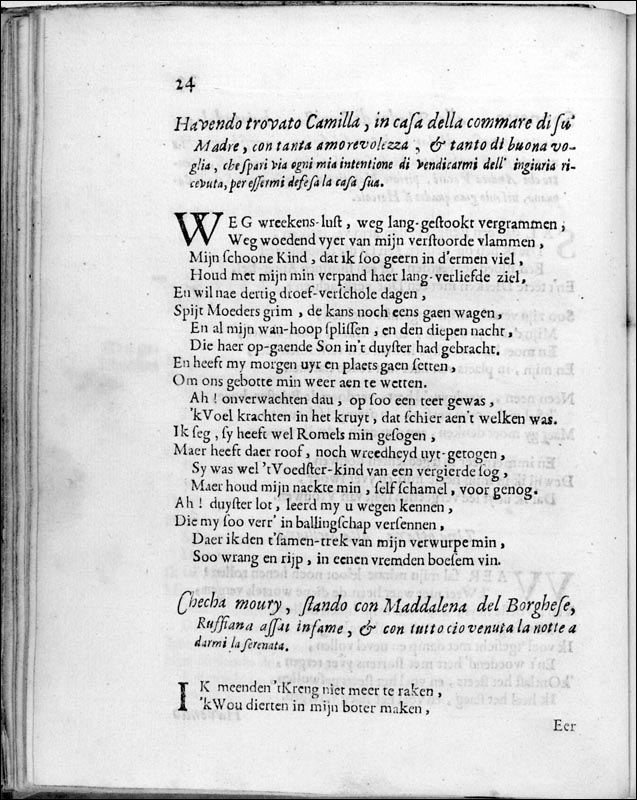 24
Havendo trovato Camilla, in casa della commare di su'
Madre, con tanta amorevolezza, & tanto di buona vo-
glia, che spari via ogni mia intentione di vendicarmi dell' ingiuria ri-
cevuta, per essermi defesa la casa sua.
WEG wreekens-lust, weg lang-gestookt vergrammen,
Weg woedend vyer van mijn verstoorde vlammen,
Mijn schoone Kind, dat ik soo geern in d'ermen viel,
Houd met mijn min verpand haer lang-verliefde ziel,
En wil nae dertig droef-verschole dagen,
Spijt Moeders grim, de kans noch eens gaen wagen,
En al mijn wan-hoop splissen, en den diepen nacht,
Die haer op-gaende Son in't duyster had gebracht.
En heeft my morgen uyr en plaets gaen setten,
Om ons gebotte min weer aen te wetten.
Ah! onverwachten dau, op soo een teer gewas,
'kVoel krachten in het kruyt, dat schier aen't welken was.
Ik seg, sy heeft wel Romels min gesogen,
Maer heeft daer roof, noch wreedheyd uyt-getogen,
Sy was wel 'tVoedster-kind van een vergierde sog,
Maer houd mijn naekte min, self schamel, voor genog.
Ah! duyster lot, leerd my u wegen kennen,
Die my soo verr' in ballingschap versennen,
Daer ik den t'samen-trek van mijn verwurpe min,
Soo wrang en rijp, in eenen vremden boesem vin.
Checha moury, stando con Maddalena del Borghese,
Ruffiana assai infame, & con tutto cio venuta la notte a
darmi la serenata.
IK meenden 'tKreng niet meer te raken,
'kWou dierten in mijn boter maken,
Eer